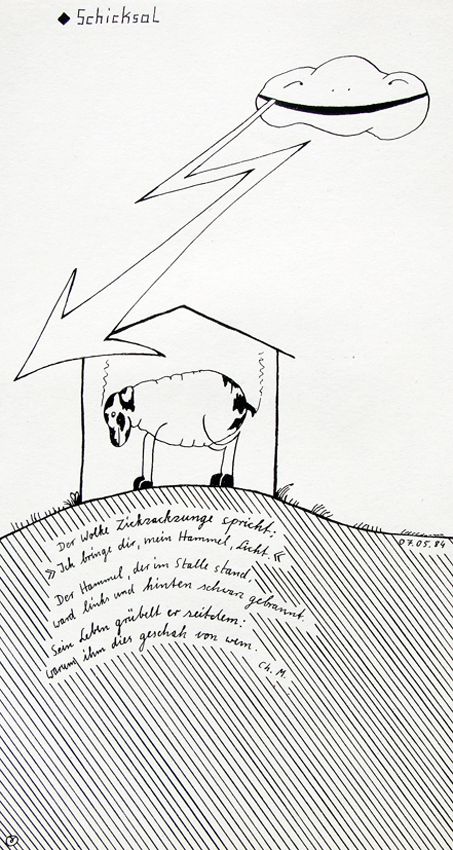 Schicksal
Der Wolke Zickzackzunge spricht:
»Ich bringe dir, mein Hammel, Licht.«
Der Hammel, der im Stalle stand,
ward links und hinten schwarz gebrannt.
Sein Leben grübelt er seitdem:
warum ihm dies geschah von wem.
Ch. M.
07.05.84